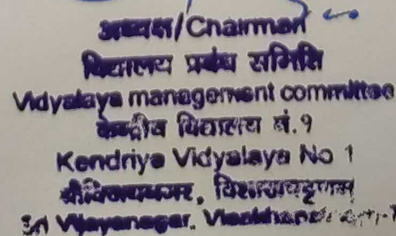 अध्यक्ष/Chairman
विद्यालय प्रबंध समिति
Vidyalaya management committee
केन्द्रीय विद्यालय नं.१
Kendriya Vidyalaya No 1
श्रीविजयनगर, विशाखपट्टणम
Sri Vijayanagar, Visakhapatnam-